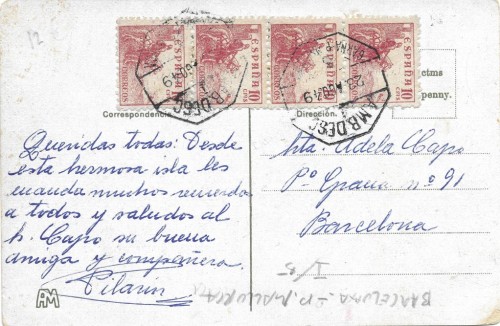 12
ESPAÑA ESPAÑA ESPAÑA ESPAÑA
10 10 10
CTS
AMB DESC
AMB.DESC
AGO 49
ctms
penny.
Correspondencia
Dirección.
Queridas todas: Desde
esta hermosa isla les
manda muchos recuerdos
a todos y saludos al
h. Capo su buena
amiga y compañera.
Pilarín
Hta. Adela Capo
Pº Gracia nº 91
Barcelona
AM
BARCELONA - P. MALLORCA